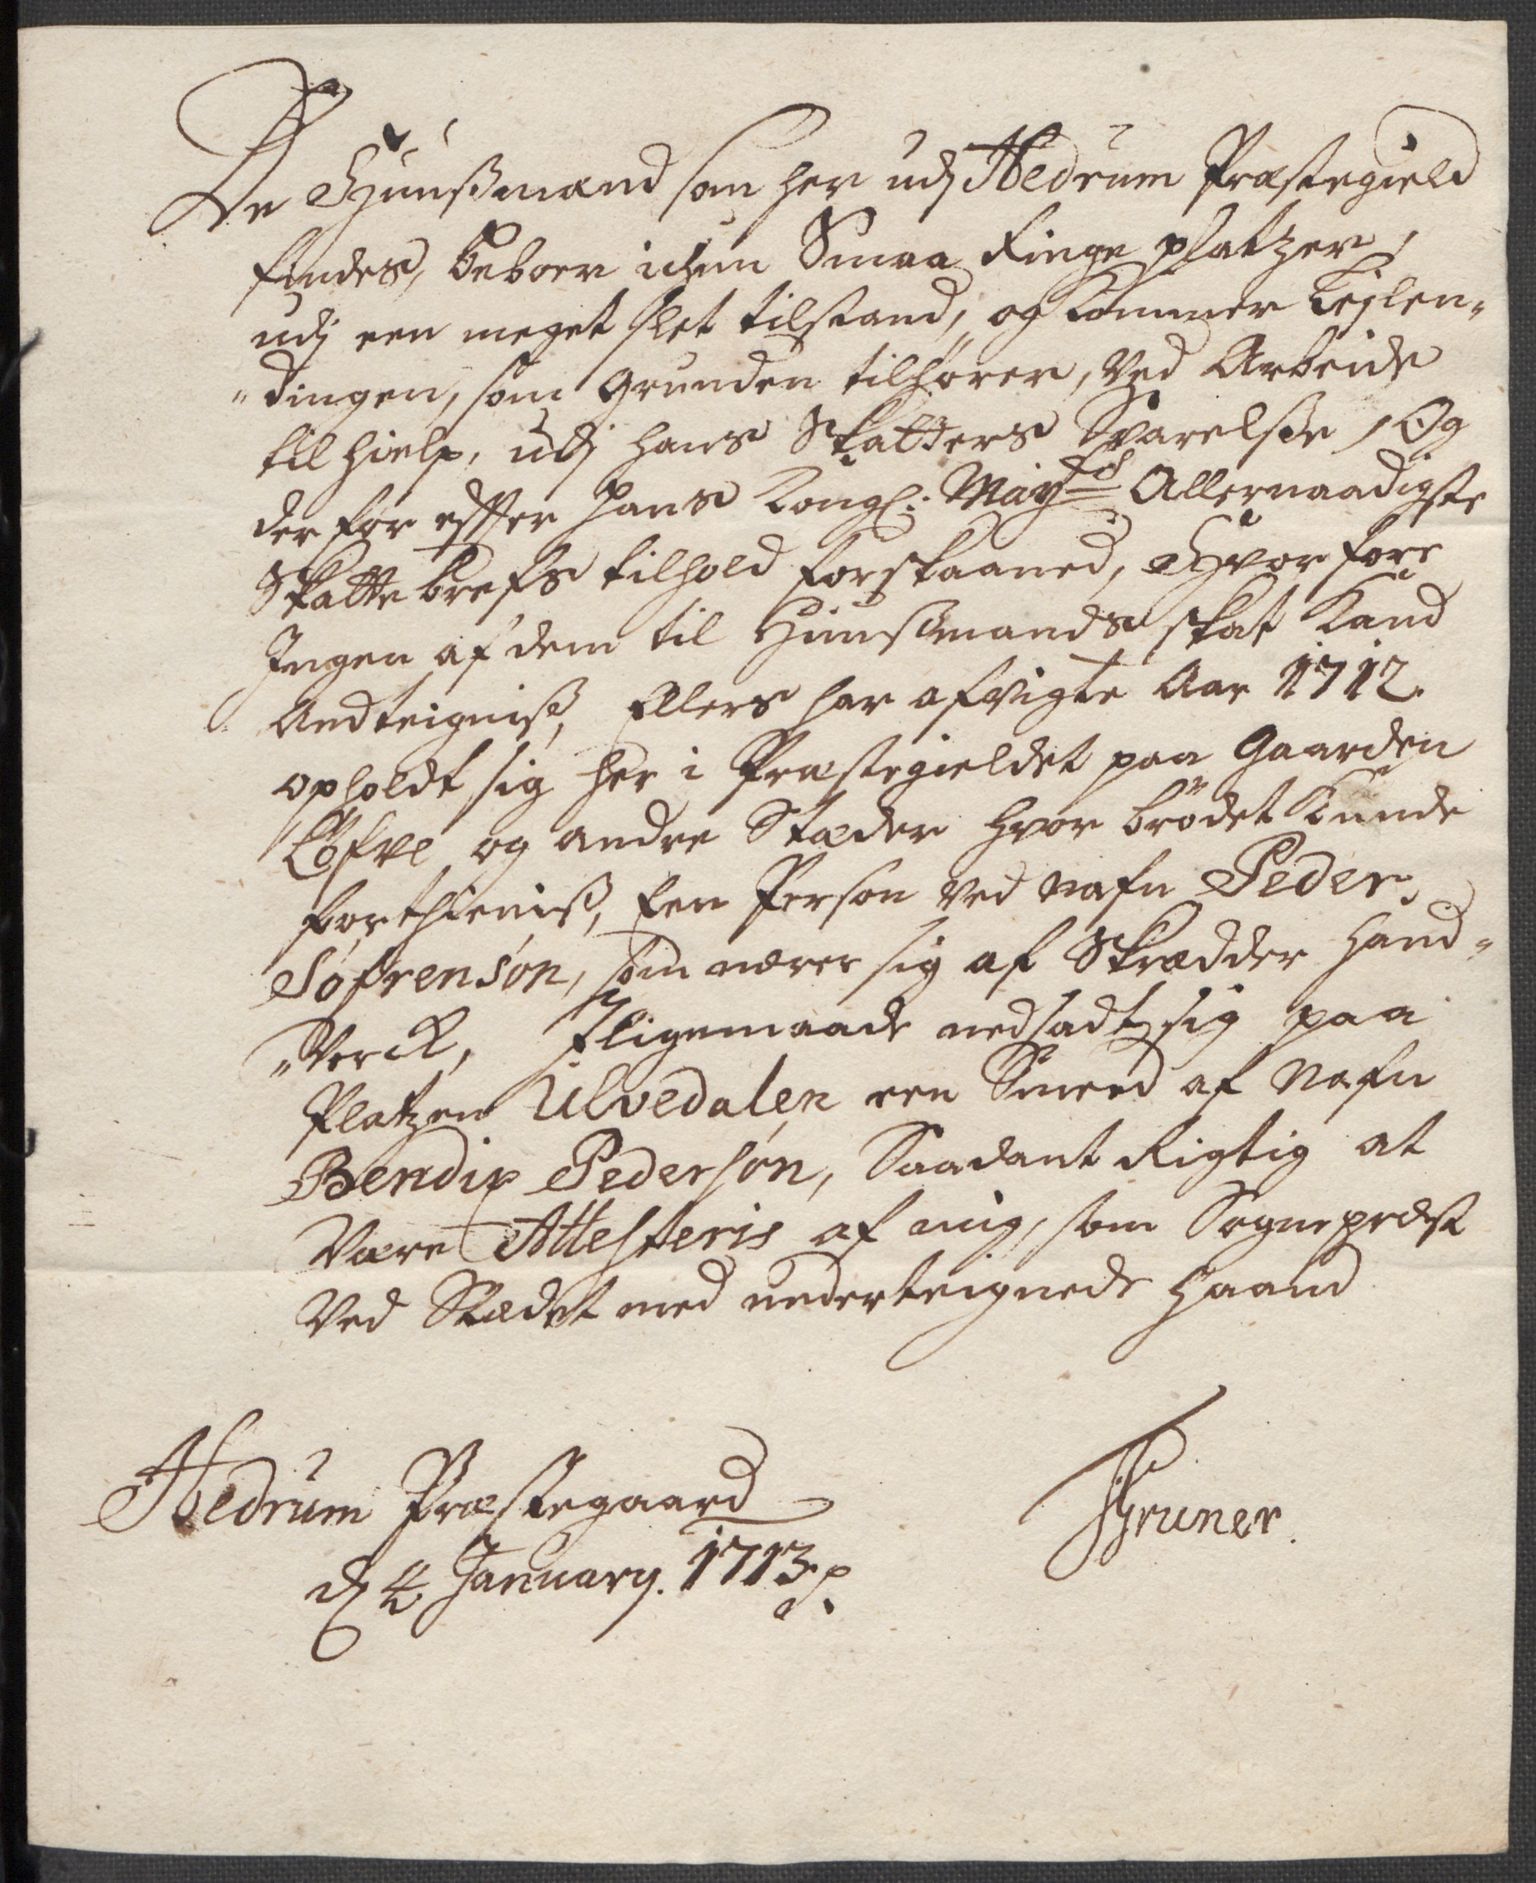 De Huusmænd som her udj Hedrum Præstegield
findes, beboer ickun Smaa Ringe platzer,
udj een meget slet tilstand, og kommer Lejlen-
-dingen, som Grunden tilhører, ved Arbeide
til hielp, udj hans Skatters Svarelse, Og
derfor effter Hans Kongl: Mayts Allernaadigste
Skattebrefs tilhold forskaaned, Hvorfore
Ingen af dem til Huusmands skat kand
Andteigniß, Ellers har afvigte Aar 1712.
opholdt sig her i Præstegieldet paa Gaarden
Löfve og andre Stæder hvor brödet kunde
forthieniß, Een Person ved nafn Peder
Söfrensön, som nærer sig af Skrædder Hand-
-verck, Iligemaade nedsadt sig paa
Platzen Ulvedalen een Smed af Nafn
Bendix Pedersön, Saadant Rigtig at
være Attesteris af mig, som Sognepræst
ved Stædet med underteignede Haand
Hedrum Præstegaard
d 4 January. 1713
Gruner